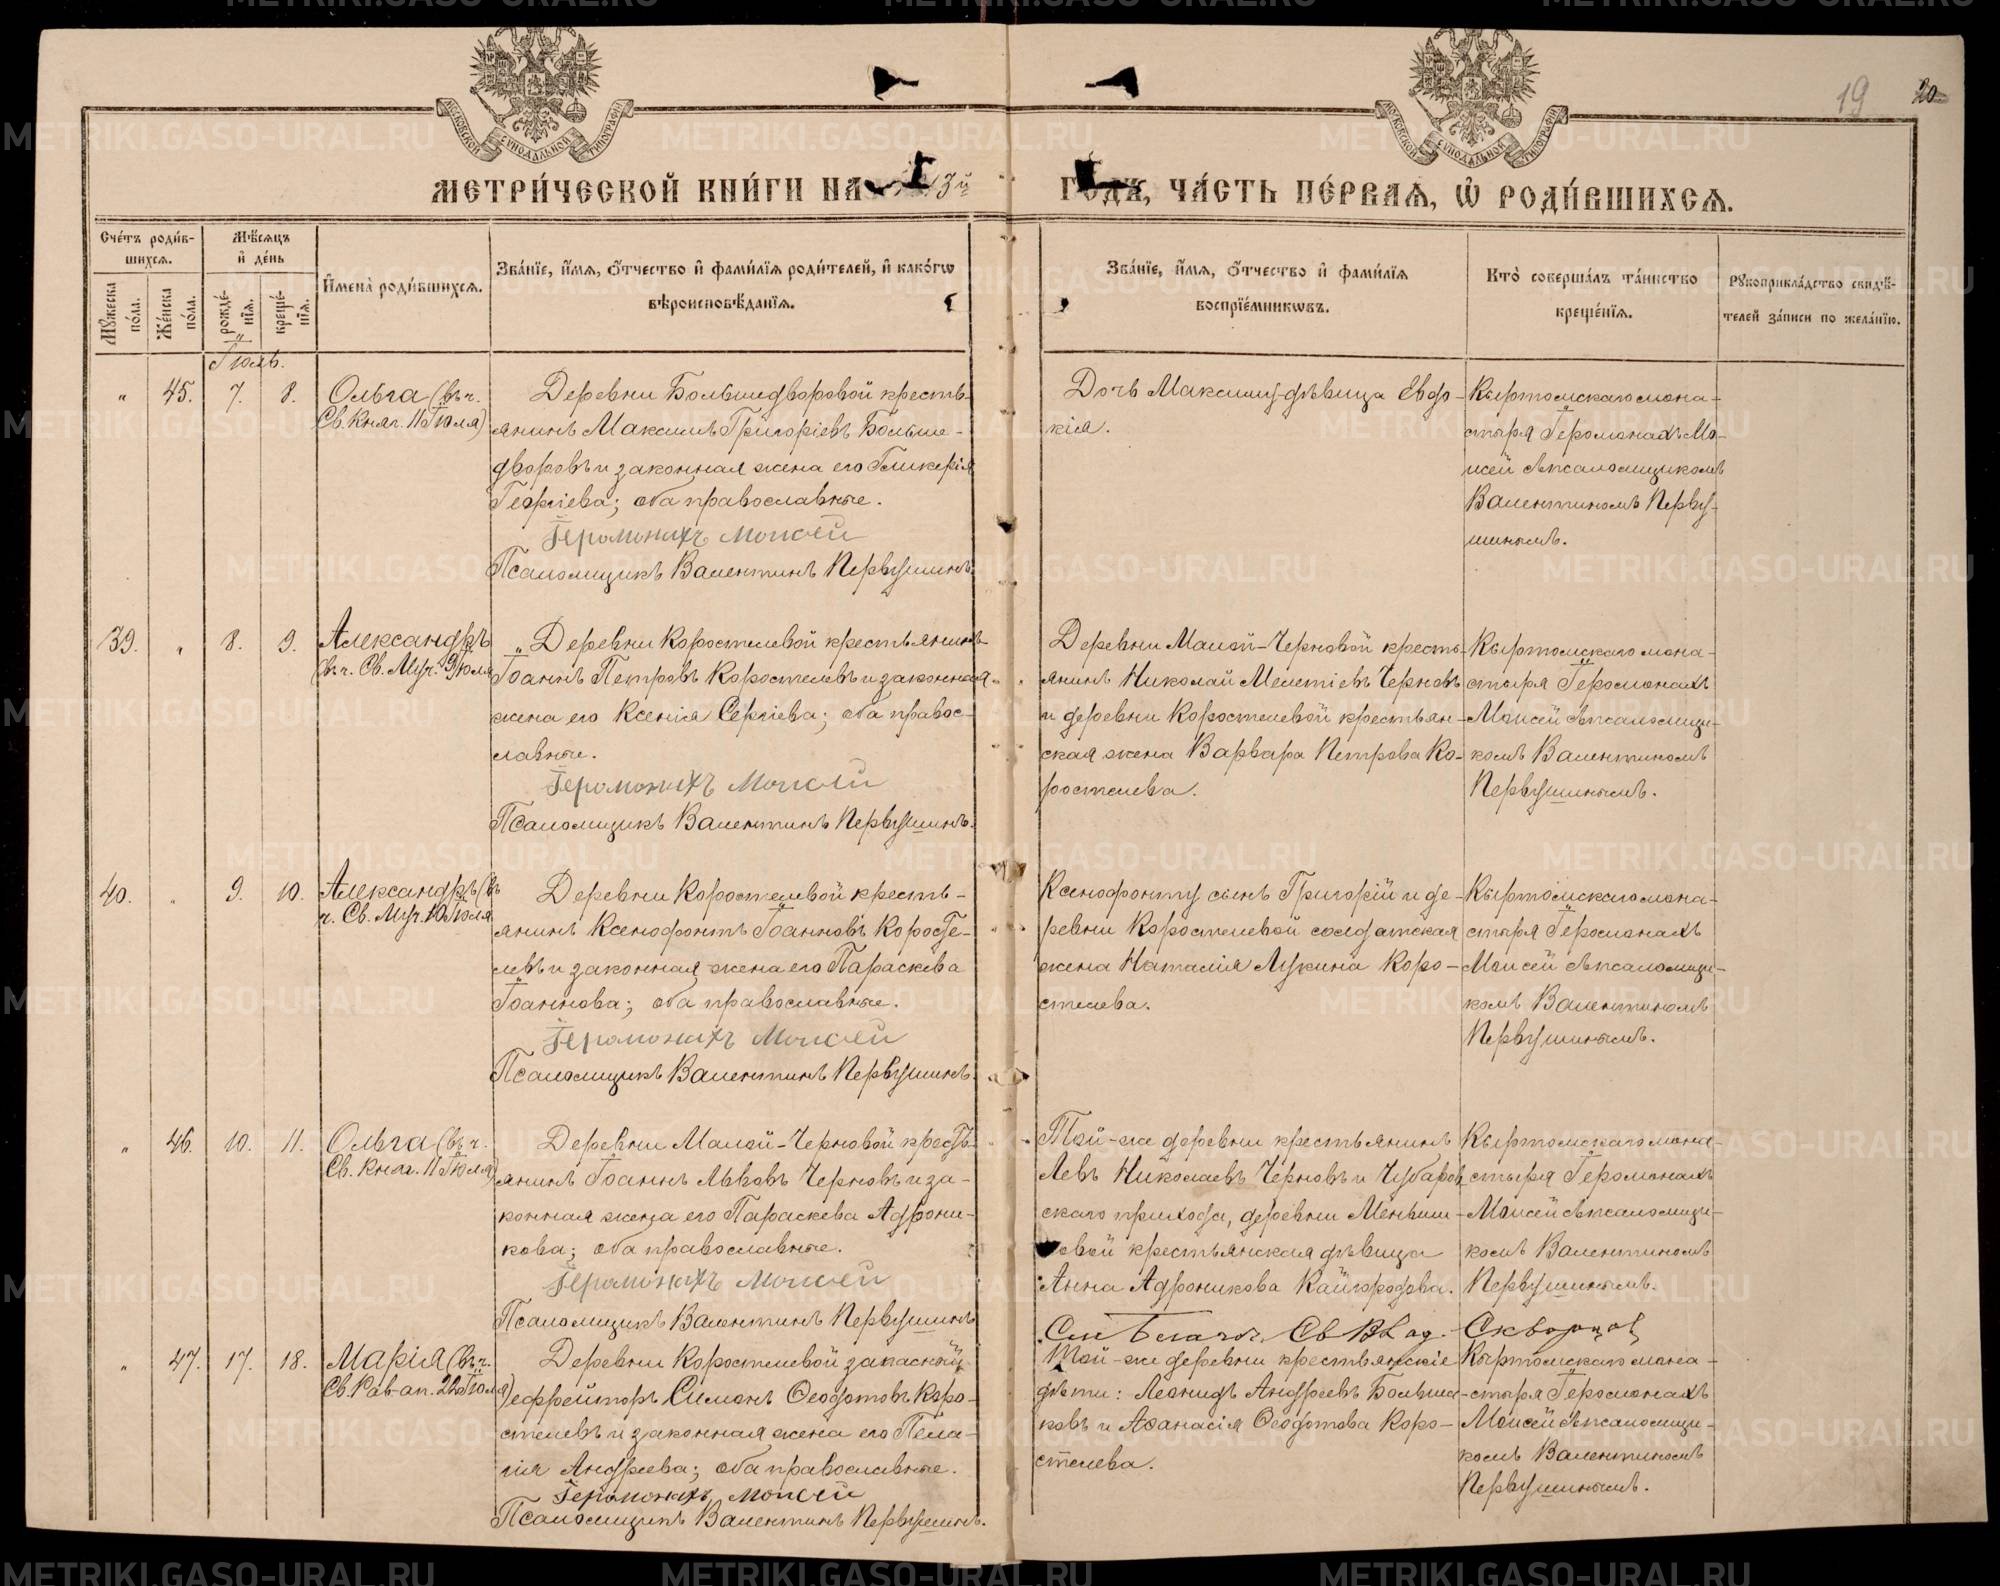 19 20
МЕТРИ́ЧЕСКОЙ КНИ́ГИ НА 13й ГОДЪ, ЧА́СТЬ ПЕ́РВАЯ, Ѡ҆ РОДИ́ВШИХСЯ.
МОСКОВСКОЙ СѴНОДАЛЬНОЙ ТИПОГРАФІИ
МОСКОВСКОЙ СѴНОДАЛЬНОЙ ТИПОГРАФІИ
Сче́тъ роди́в-
шихся.
Му́жеска по́ла.
Же́нска по́ла.
Мѣ́сяцъ
и҆ де́нь
рожде́-
нїя.
креще́-
нїя.
И҆мена̀ роди́вшихся.
Зва́нїе, и҆́мя, ѻ҆́тчество и҆ фами́лїя роди́телей, и҆ како́гѡ
вѣроисповѣ́данїя.
Зва́нїе, и҆́мя, ѻ҆́тчество и҆ фами́лїя
воспрїе́мникѡвъ.
Кто̀ соверша́лъ та́инство
креще́нїя.
Рꙋкоприкла́дство свидѣ́-
телей за́писи по жела́нїю.
Іюль.
„ 45. 7. 8.
Ольга (въ ч.
Св. Княг. 11 Іюля)
Деревни Большедворовой кресть-
янинъ Максимъ Григоріевъ Больше-
дворовъ и законная жена его Гликерія
Георгіева; оба православные.
Іеромонахъ Моисей
Псаломщикъ Валентинъ Первушинъ.
Дочь Максиму-дѣвица Евдо-
кія.
Кыртомскаго мона-
стыря Іеромонахъ Мо-
исей съ псаломщикомъ
Валентиномъ Перву-
шинымъ.
39. „ 8. 9.
Александръ
(въ ч. Св. Муч. 9 Іюля
„ Деревни Коростелевой крестьянинъ
Іоаннъ Петровъ Коростелевъ и законная
жена его Ксенія Сергіева; оба правос-
лавные.
Іеромонахъ Моисей
Псаломщикъ Валентинъ Первушинъ.
Деревни Малой-Черновой кресть-
янинъ Николай Мелетіевъ Черновъ
и деревни Коростелевой крестьян-
ская жена Варвара Петрова Ко-
ростелева.
Кыртомскаго мона-
стыря Іеромонахъ
Моисей съ псаломщи-
комъ Валентиномъ
Первушинымъ.
40. „ 9. 10.
Александръ (въ
ч. Св. Муч. 10 Іюля
Деревни Коростелевой кресть-
янинъ Ксенофонтъ Іоанновъ Коросте-
левъ и законная жена его Параскева
Іоаннова; оба православные.
Іеромонахъ Моисей
Псаломщикъ Валентинъ Первушинъ.
Ксенофонту сынъ Григорій и де-
ревни Коростелевой солдатская
жена Наталія Лукина Коро-
стелева.
Кыртомскаго мона-
стыря Іеромонахъ
Моисей съ псаломщи-
комъ Валентиномъ
Первушинымъ.
„ 46. 10. 11.
Ольга (въ ч.
Св. Княг. 11 Іюля)
Деревни Малой-Черновой кресть-
янинъ Іоаннъ Львовъ Черновъ и за-
конная жена его Параскева Адрони-
кова; оба православные.
Іеромонахъ Моисей
Псаломщикъ Валентинъ Первушинъ
Той-же деревни крестьянинъ
Левъ Николаевъ Черновъ и Чубаров-
скаго прихода, деревни Меньши-
ковой крестьянская дѣвица
Анна Адроникова Кайгородова.
Кыртомскаго мона-
стыря Іеромонахъ
Моисей съ псаломщи-
комъ Валентиномъ
Первушинымъ.
Благоч. Скворцов
„ 47. 17. 18.
Марія (въ ч.
Св. Рав-ап. 22 Іюля)
Деревни Коростелевой запасный
ефрейторъ Симонъ Ѳеодотовъ Коро-
стелевъ и законная жена его Пела-
гія Андреева; оба православные.
Іеромонахъ Моисей
Псаломщикъ Валентинъ Первушинъ.
Той-же деревни крестьянскіе
дѣти: Леонидъ Андреевъ Больша-
ковъ и Аѳанасія Ѳеодотова Коро-
стелева.
Кыртомскаго мона-
стыря Іеромонахъ
Моисей съ псаломщи-
комъ Валентиномъ
Первушинымъ.
METRIKI.GASO-URAL.RU